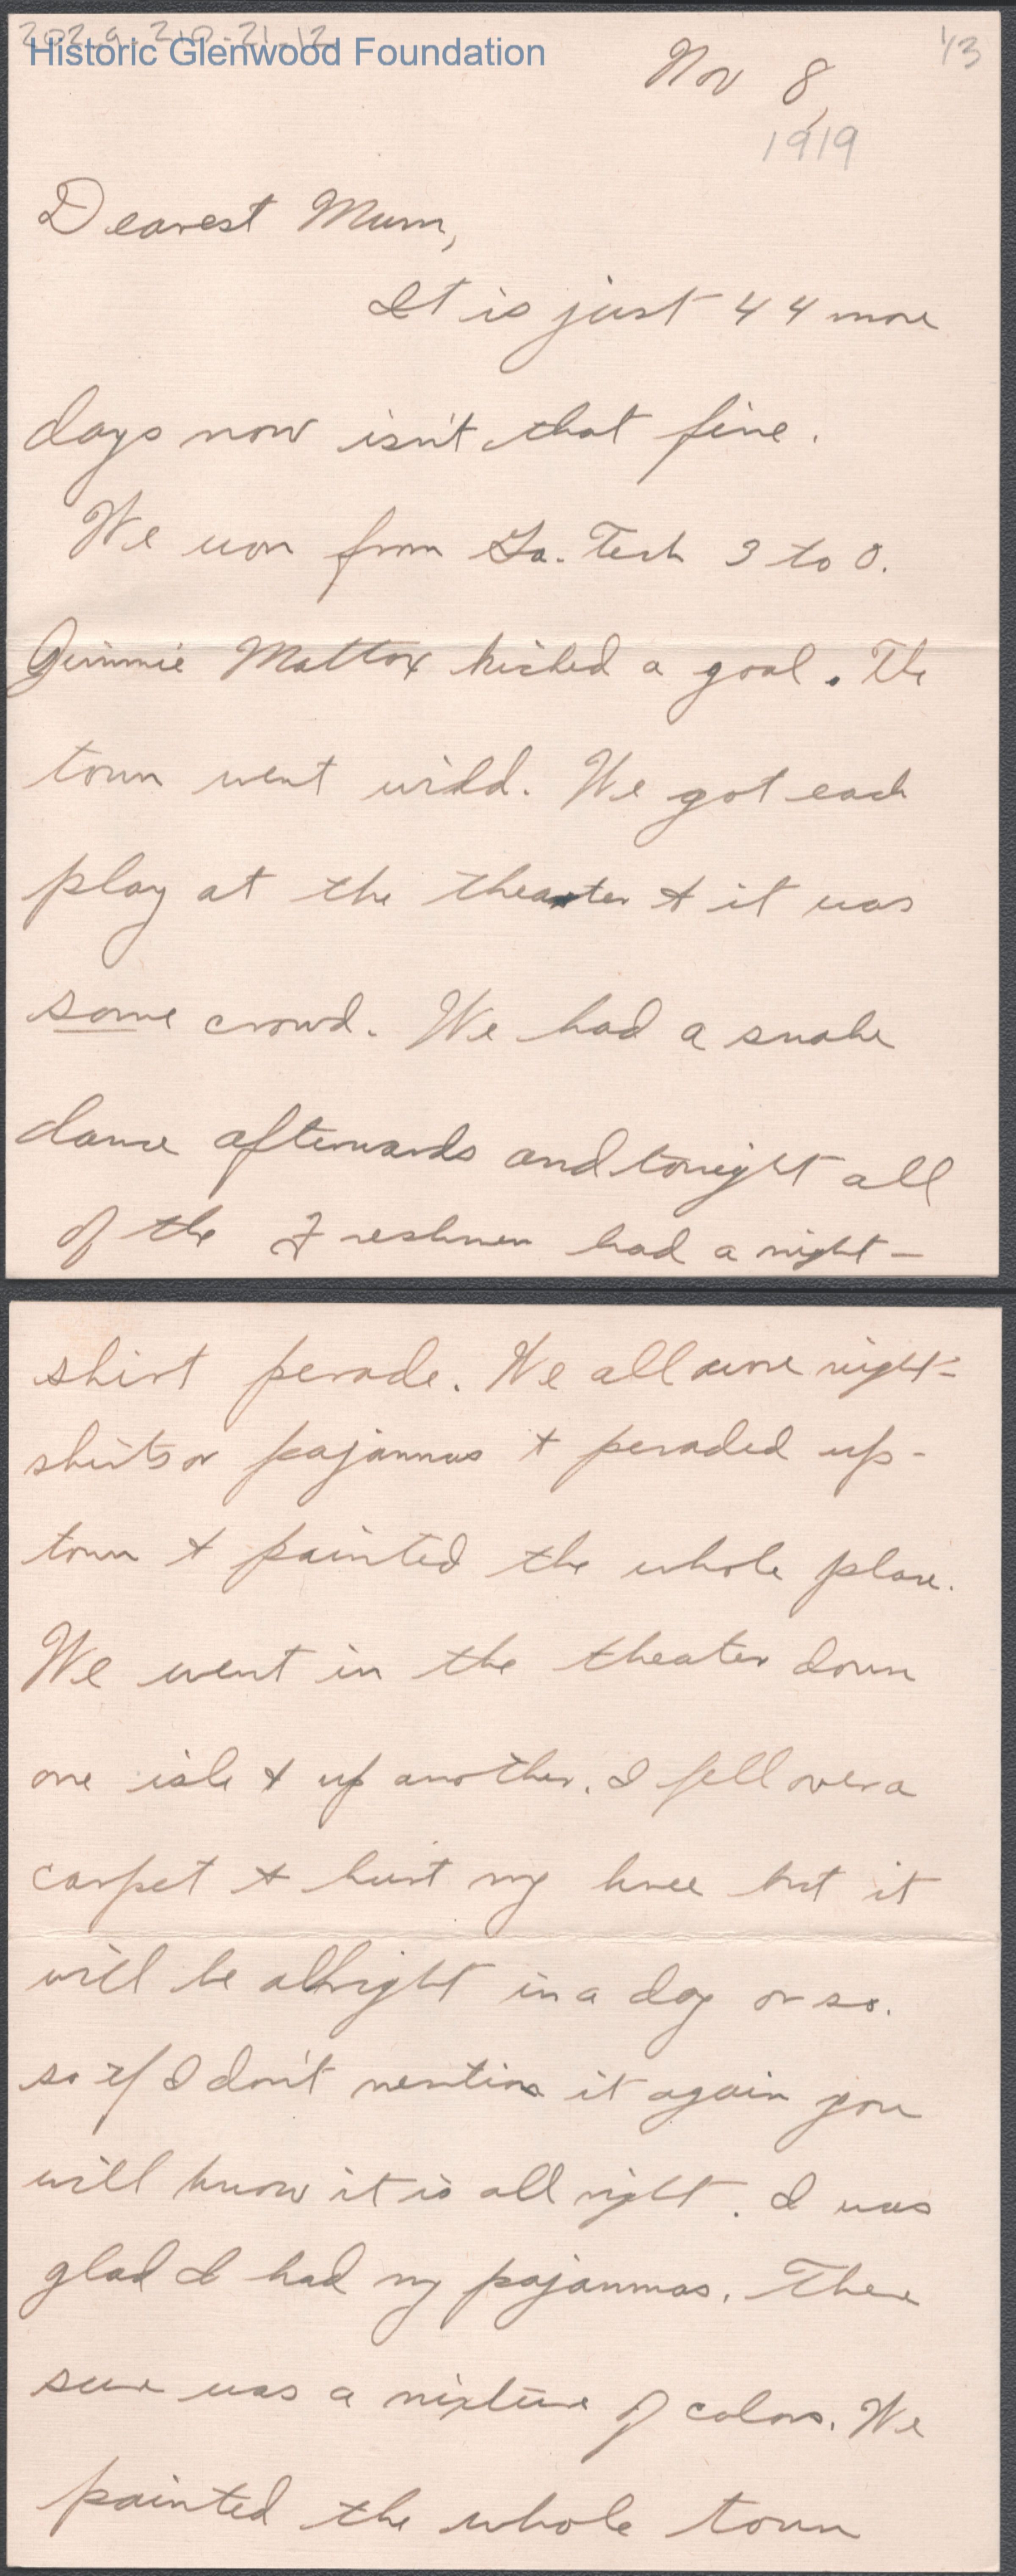 202.9.210-21.12
Historic Glenwood Foundation
1/3
Nov 8,
1919
Dearest Mum,
It is just 44 more
days now isn't that fine.
We won from Ga. Tech 3 to 0.
Jimmie Mattox kicked a goal. The
town went wild. We got each
play at the theater & it was
some crowd. We had a snake
dance afterwards and tonight all
of the Freshmen had a night-
shirt perade. We all wore night-
shirts or pajammas & peraded up-
town & painted the whole place.
We went in the theater down
one isle & up another. I fell over a
carpet & hurt my knee but it
will be allright in a day or so.
so if I don't mention it again you
will know it is all right. I was
glad I had my pajammas. There
sure was a mixture of colors. We
painted the whole town